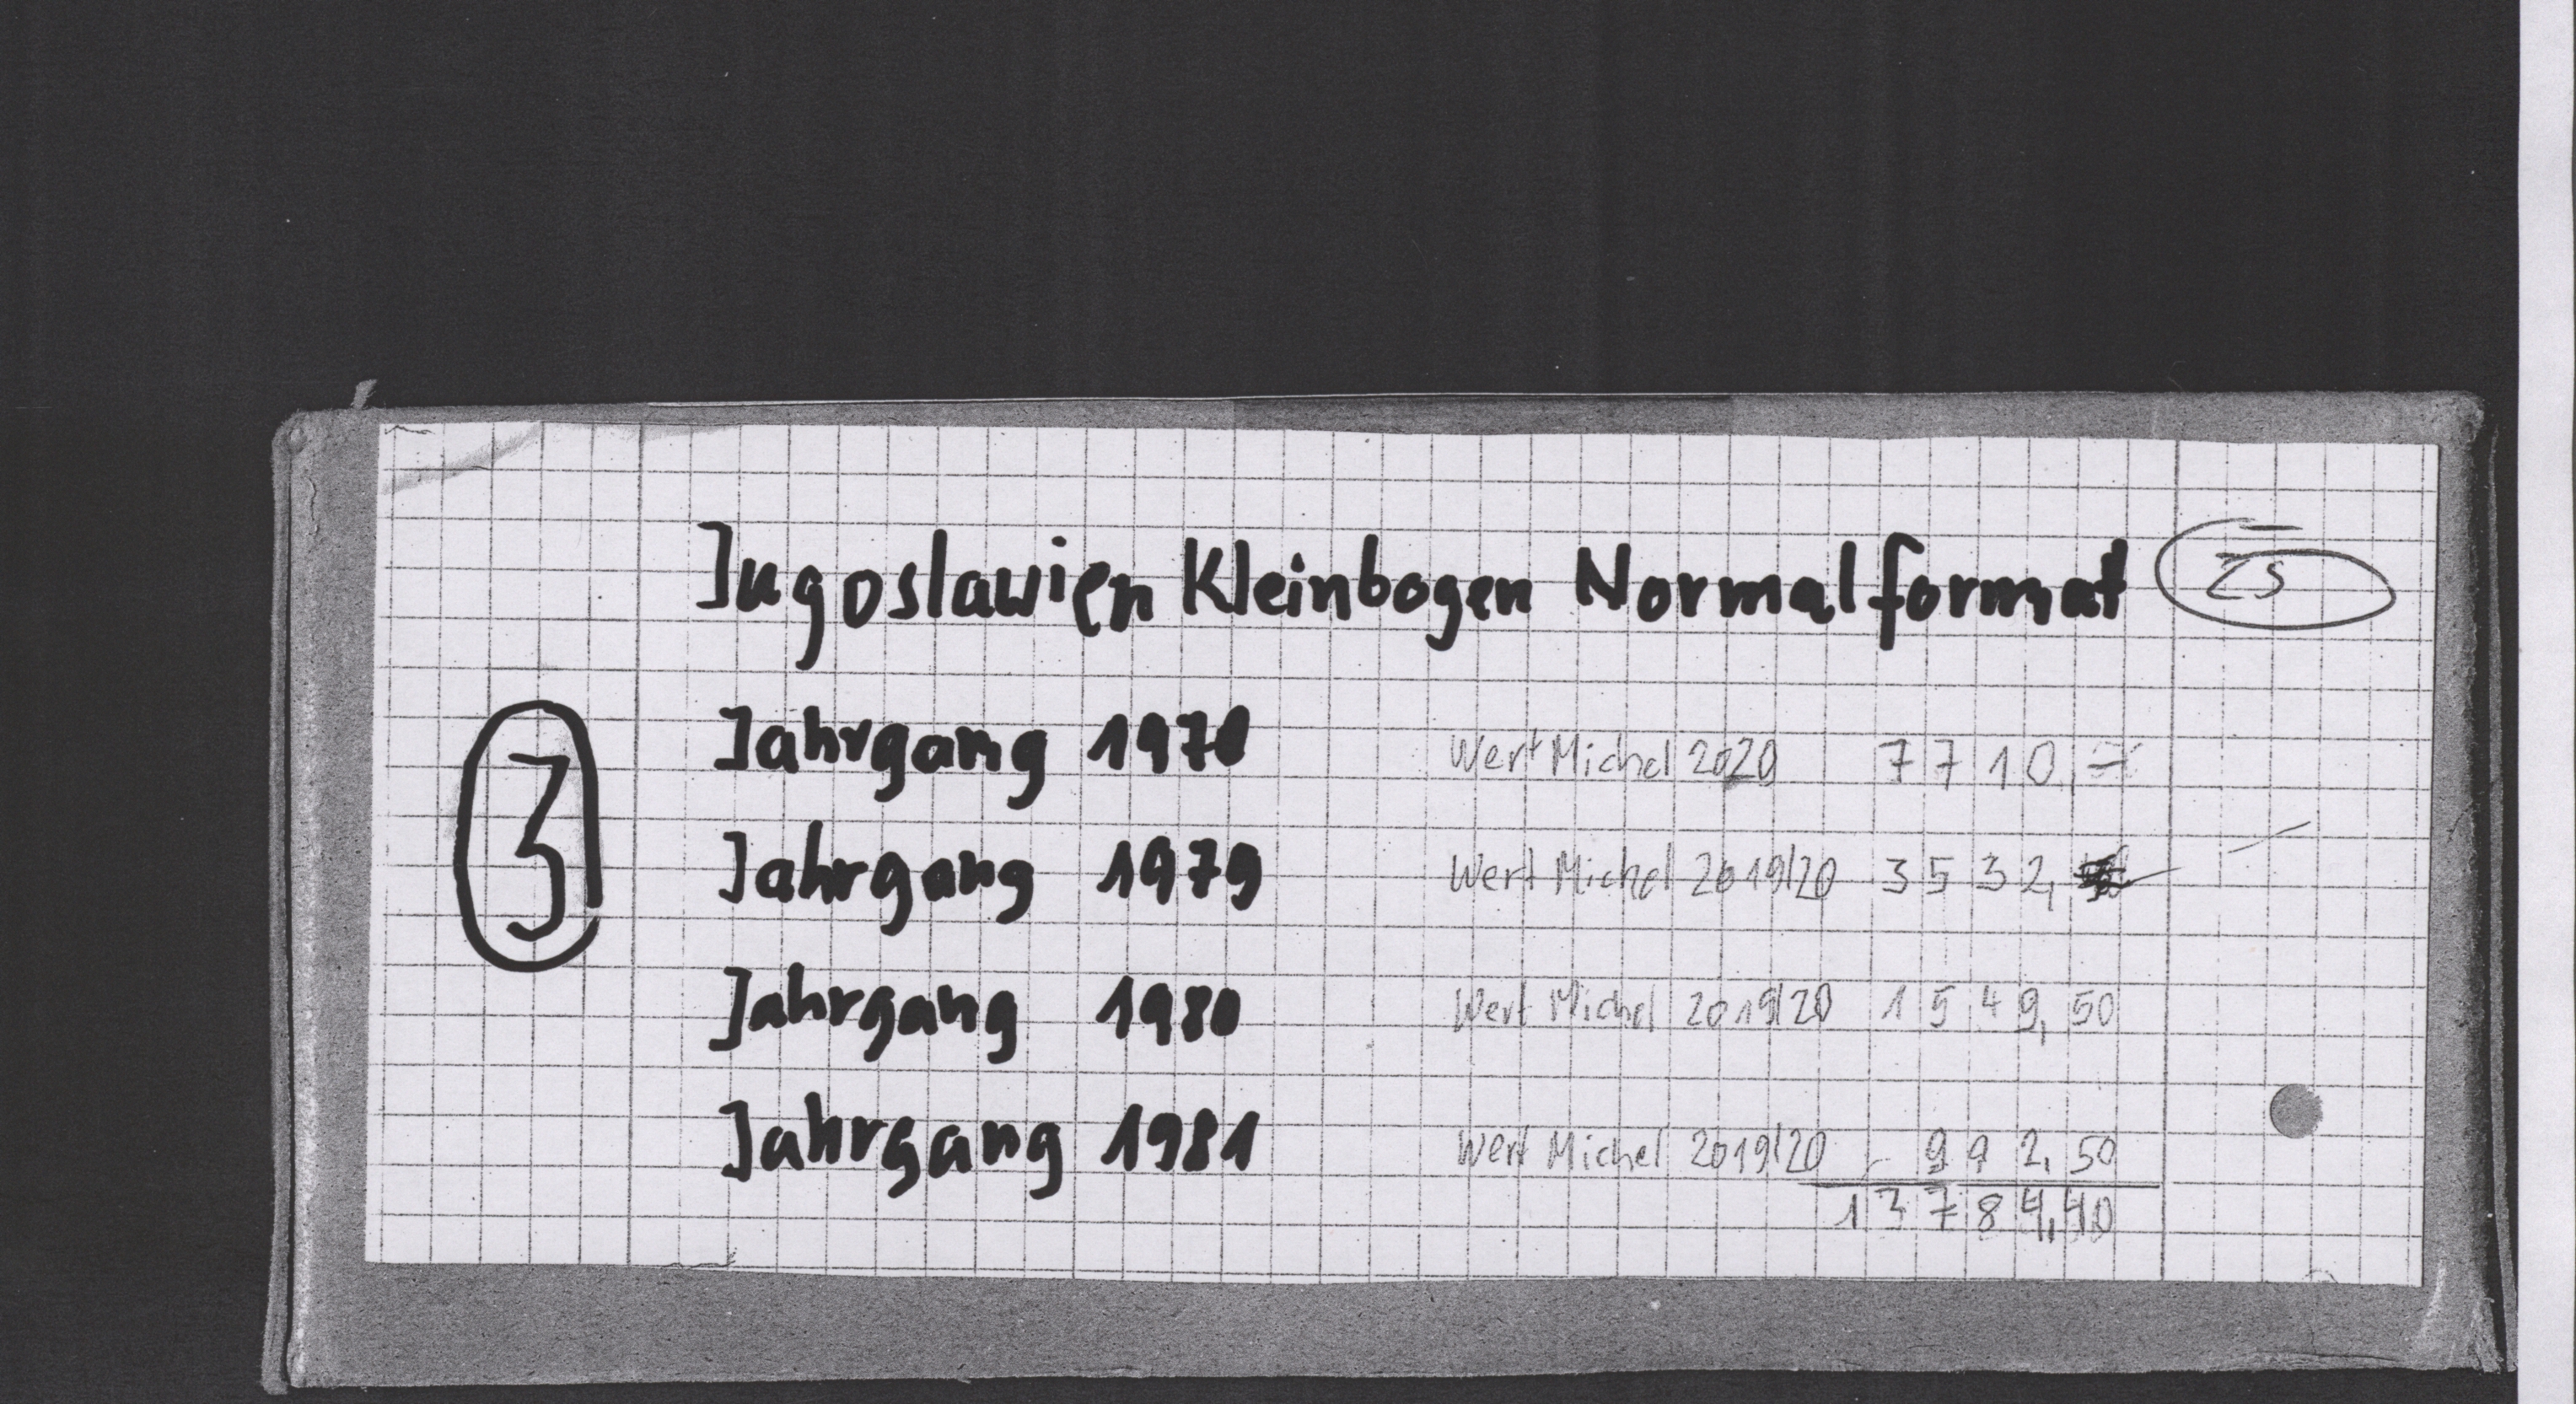 Jugoslawien Kleinbogen Normalformat
25
3
Jahrgang 1978 Wert Michel 2020 7710,-
Jahrgang 1979 Wert Michel 2019/20 3532,
Jahrgang 1980 Wert Michel 2019/20 1549,50
Jahrgang 1981 Wert Michel 2019/20 992,50
13784,40